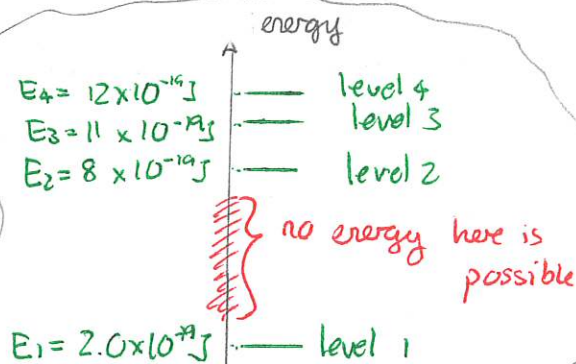 energy
E₄ = 12 x 10⁻¹⁹J level 4
E₃ = 11 x 10⁻¹⁹J level 3
E₂ = 8 x 10⁻¹⁹J level 2
no energy here is
possible
E₁ = 2.0x10⁻¹⁹J level 1